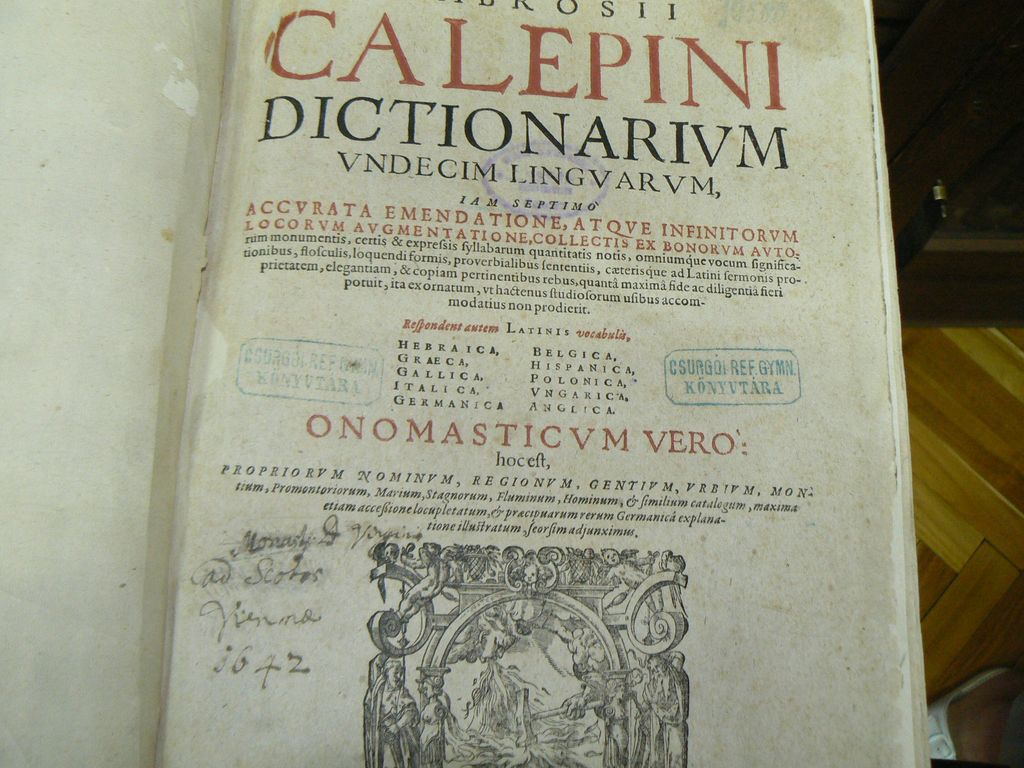 BROSII
CALEPINI
DICTIONARIVM
VNDECIM LINGVARVM,
IAM SEPTIMO
ACCVRATA EMENDATIONE, ATQVE INFINITORVM
LOCORVM AVGMENTATIONE, COLLECTIS EX BONORVM AVTO-
rum monumentis, certis & expreſsis ſyllabarum quantitatis notis, omniumque vocum ſignifica-
tionibus, floſculis, loquendi formis, proverbialibus ſententiis, cæterisque ad Latini ſermonis pro-
prietatem, elegantiam, & copiam pertinentibus rebus, quantâ maximâ fide ac diligentiâ fieri
potuit, ita exornatum, vt hactenus ſtudioſorum uſibus accom-
modatius non prodierit.
Reſpondent autem LATINIS vocabulis,
HEBRAICA, BELGICA,
GRAECA, HISPANICA,
GALLICA, POLONICA,
ITALICA, VNGARICA,
GERMANICA ANGLICA.
CSURGÓI REF. GYMN.
KÖNYVTÁRA
CSURGÓI REF. GYMN.
KÖNYVTÁRA
ONOMASTICVM VERÒ:
hoc eſt,
PROPRIORVM NOMINVM, REGIONVM, GENTIVM, VRBIVM, MON-
tium, Promontoriorum, Marium, Stagnorum, Fluminum, Hominum, & ſimilium catalogum, maxima
etiam acceſsione locupletatum, & præcipuarum rerum Germanicâ explana-
tione illuſtratum, ſeorſim adjunximus.
ad Scotos
Viennæ
1642